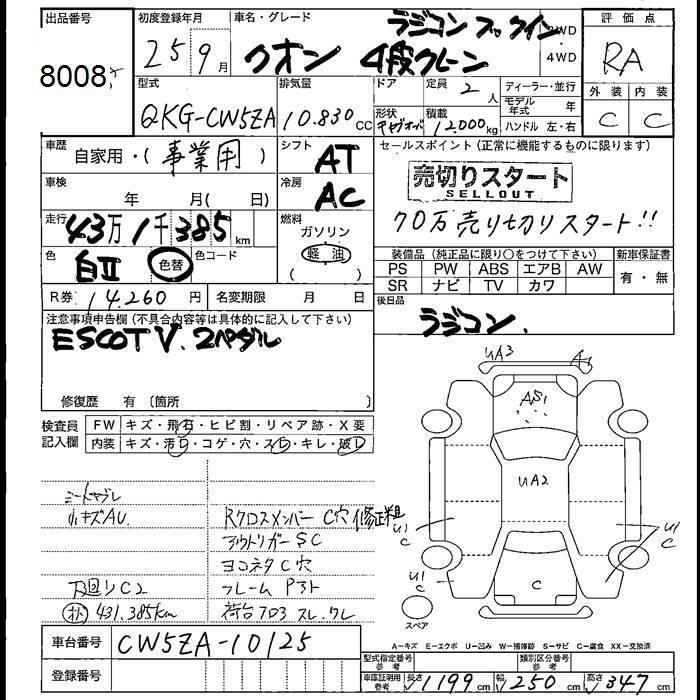 出品番号
8008
初度登録年月
25 9月
車名・グレード
クオン 4段クレーン
ラジコン フックイン
2WD
4WD
評価点
RA
外装 内装
C C
型式
QKG-CW5ZA
排気量
10.830 CC
ドア
定員
2人
形状
キャブオーバ
積載
12,000kg
ディーラー・並行
モデル年式 年
ハンドル 左・右
車歴
自家用・(事業用)
車検
年 月(日)
シフト
AT
冷房
AC
走行
43万1千385km
燃料
ガソリン
軽油
( )
色
白II
色替
色コード
R券 14,260円
名変期限 月 日
セールスポイント(正常に機能するものに限ります)
売切りスタート
SELLOUT
70万売り切りスタート!!
装備品(純正品に限り○をつけて下さい)
PS PW ABS エアB AW
SR ナビ TV カワ
新車保証書
有・無
後日品
ラジコン.
注意事項申告欄(不具合内容等は具体的に記入して下さい)
ESCOT V. 2ペダル
修復歴 有〔箇所
検査員記入欄
FW キズ・飛石・ヒビ割・リペア跡・X要
内装 キズ・汚れ・コゲ・穴・スレ・キレ・破れ
小キズAU
Rクロスメンバー C穴 修正粗
アウトリガーSC
ヨコネタC穴
刃回りC2
フレーム
431,385km
荷台フロス スレ.ワレ
UA3
A1
AS1
UA2
U1
C
U1
C
U1
C
C
スペア
車台番号
CW5ZA-10125
登録番号
A-キズ E-エクボ U-凹み W-補修跡 S-サビ C-腐食 XX-交換済
型式指定番号
参考
類別区分番号
参考
車庫証明用参考
長さ 1199cm
幅 250cm
高さ 347cm